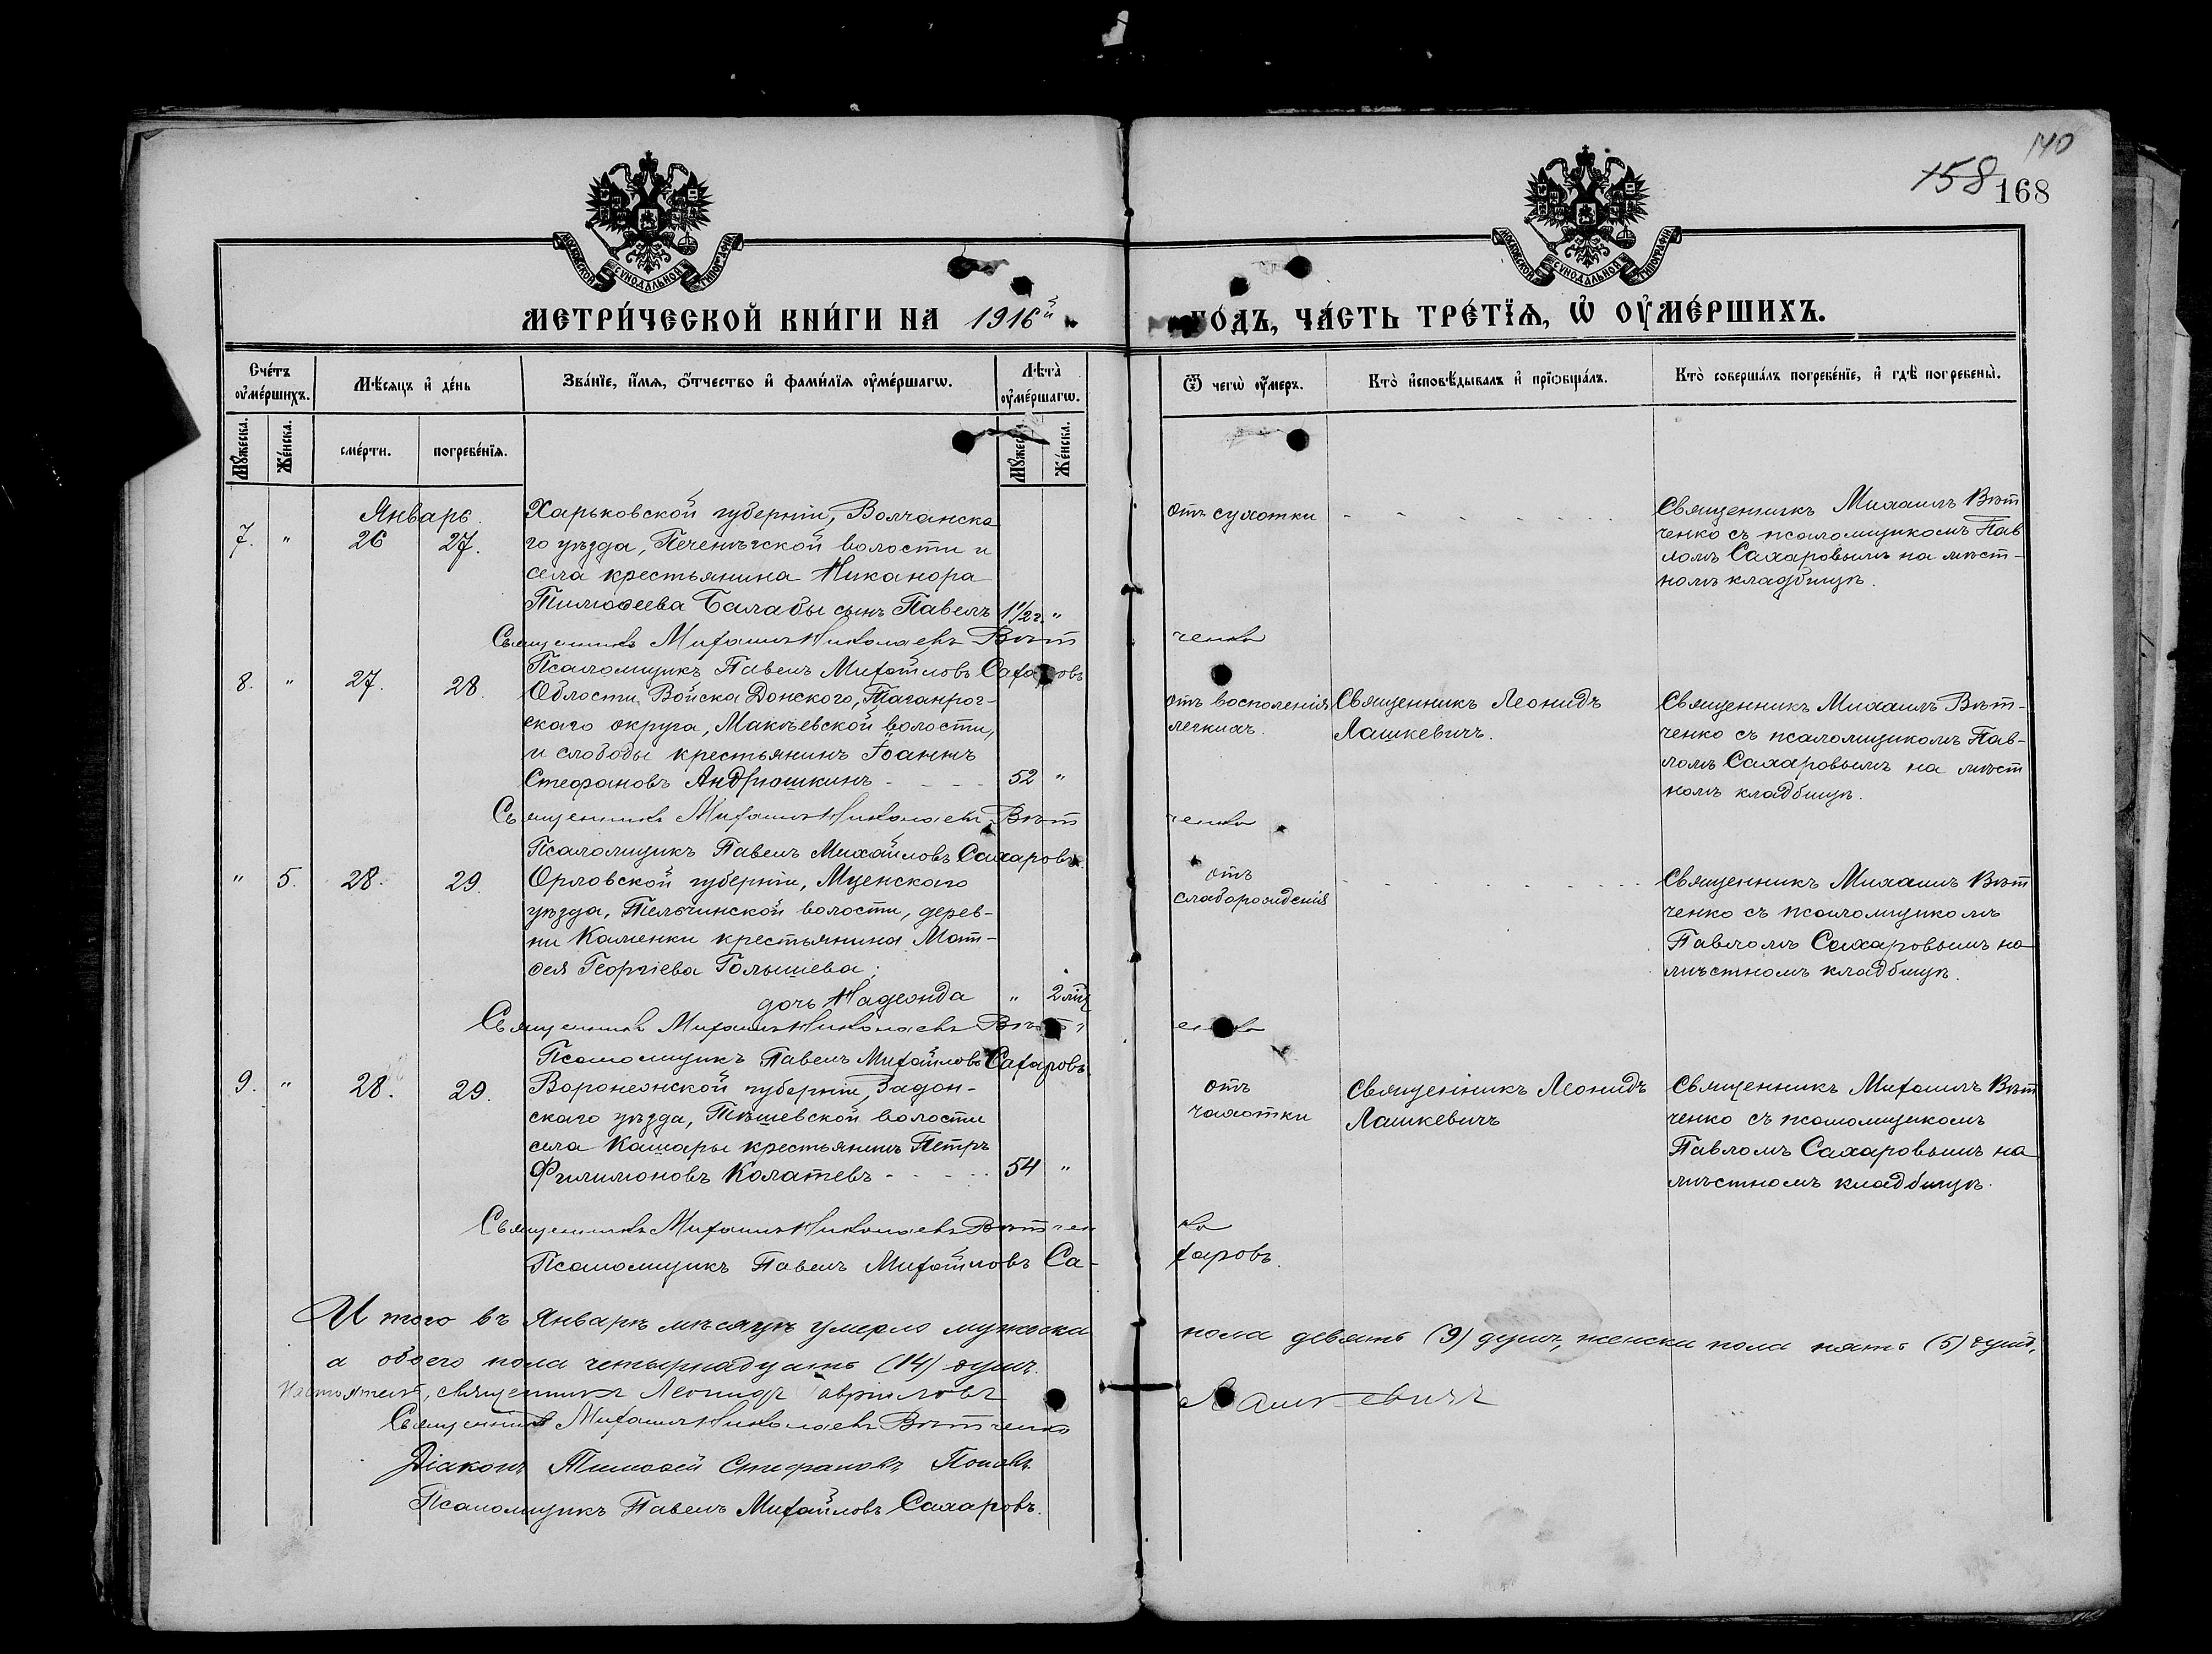 140
158
168
МОСКОВСКОЙ СѴНОДАЛЬНОЙ ТИПОГРАФІИ
МОСКОВСКОЙ СѴНОДАЛЬНОЙ ТИПОГРАФІИ
МЕТРИ́ЧЕСКОЙ КНИ́ГИ НА 1916й
ГО́ДЪ, ЧА́СТЬ ТРЕ́ТЇѦ, Ѡ҆ ОУ҆МЕ́РШИХЪ.
Сче́тъ оу҆ме́ршихъ.
Мѣ́сяцъ и҆ де́нь
Зва́нїе, и҆́мѧ, ѻ҆́тчество и҆ фами́лїѧ оу҆ме́ршагѡ.
Лѣ́та оу҆ме́ршагѡ.
Ѿ чегѡ̀ оу҆́меръ.
Кто̀ и҆сповѣ́дывалъ и҆ прїѻбща́лъ.
Кто̀ соверша́лъ погребе́нїе, и҆ гдѣ̀ погребены̀.
Мꙋ́жеска.
Же́нска.
сме́рти.
погребе́нїѧ.
Мꙋ́жеска.
Же́нска.
Январь.
7. " 26 27.
Харьковской губерніи, Волчанска
го уѣзда, Печенѣгской волости и
села крестьянина Никанора
Тимоѳеева Балабы сынъ Павелъ 1½ г. "
отъ сухотки
Священникъ Михаилъ Вѣт
ченко съ псаломщикомъ Пав
ломъ Сахаровымъ на мѣст-
номъ кладбищѣ.
Священникъ Михаилъ Николаевъ Вѣтченко
Псаломщикъ Павелъ Михайловъ Сахаровъ
8. " 27. 28.
Области Войска Донского, Таганрог-
скаго округа, Макѣевской волости,
и слободы крестьянинъ Іоаннъ
Стефановъ Андрюшкинъ 52 "
отъ воспаленія
легкихъ.
Священникъ Леонидъ
Лашкевичъ.
Священникъ Михаилъ Вѣт-
ченко съ псаломщикомъ Пав-
ломъ Сахаровымъ на мѣст
номъ кладбищѣ.
Священникъ Михаилъ Николаевъ Вѣтченко
Псаломщикъ Павелъ Михайловъ Сахаровъ
" 5. 28. 29.
Орловской губерніи, Мценскаго
уѣзда, Тельчинской волости, дерев-
ни Каменки крестьянина Мат-
ѳея Георгіева Голышева;
дочь Надежда " 2 мц
отъ
слаборожденія
Священникъ Михаилъ Вѣт
ченко съ псаломщикомъ
Павломъ Сахаровымъ на
мѣстномъ кладбищѣ.
Священникъ Михаилъ Николаевъ Вѣтченко
Псаломщикъ Павелъ Михайловъ Сахаровъ.
9. " 28. 29.
Воронежской губерніи, Задон-
скаго уѣзда, Тѣшевской волости
села Кашары крестьянинъ Петръ
Филимоновъ Калатевъ 54 "
отъ
чахотки
Священникъ Леонидъ
Лашкевичъ
Священникъ Михаилъ Вѣт
ченко съ псаломщикомъ
Павломъ Сахаровымъ на
мѣстномъ кладбищѣ.
Священникъ Михаилъ Николаевъ Вѣтченко
Псаломщикъ Павелъ Михайловъ Сахаровъ.
Итого въ Январѣ мѣсяцѣ умерло мужеска пола девять (9) душъ, женска пола пять (5) душъ,
а обоего пола четырнадцать (14) душъ.
Настоятель, священникъ Леонидъ Лашкевичъ
Священникъ Михаилъ Николаевъ Вѣтченко
Діаконъ Тимоѳей Стефановъ Поповъ
Псаломщикъ Павелъ Михайловъ Сахаровъ.